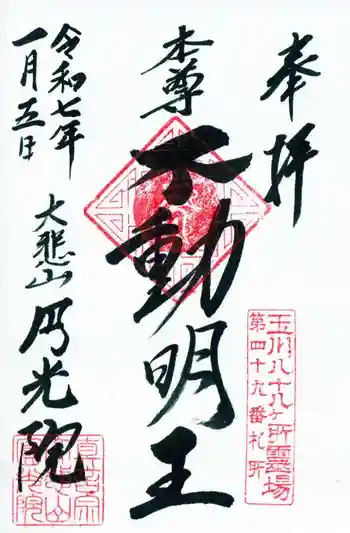 奉拝
玉川八十八ヶ所霊場
第四十九番札所
本尊
不動明王
大悲山 円光院
令和七年
一月五日